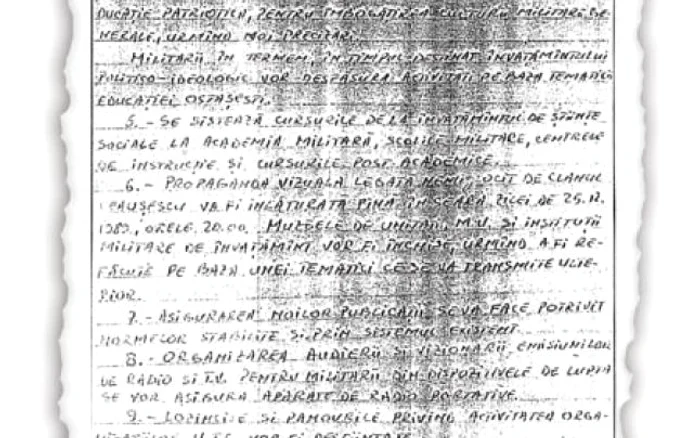 DUCAȚIE PATRIOTICĂ, PENTRU ÎMBOGĂȚIREA CULTURII MILITARE GE-
NERALE, URMÎND NOI PRECIZĂRI.
MILITARII ÎN TERMEN, ÎN TIMPUL DESTINAT ÎNVĂȚĂMÎNTULUI
POLITICO-IDEOLOGIC VOR DESFĂȘURA ACTIVITĂȚI PE BAZA TEMATICII
EDUCAȚIEI OSTĂȘEȘTI.
5. - SE SISTEAZĂ CURSURILE DE LA ÎNVĂȚĂMÎNTUL DE ȘTIINȚE
SOCIALE LA ACADEMIA MILITARĂ, ȘCOLILE MILITARE, CENTRELE
DE INSTRUCȚIE ȘI CURSURILE POST ACADEMICE.
6. - PROPAGANDA VIZUALĂ LEGATĂ DE CLANUL
CEAUȘESCU VA FI ÎNLĂTURATĂ PÎNĂ ÎN SEARA ZILEI DE 25.12.
1989, ORELE 20.00. MUZEELE DE UNITĂȚI, M.U. ȘI INSTITUȚII
MILITARE DE ÎNVĂȚĂMÎNT VOR FI ÎNCHISE, URMÎND A FI RE-
FĂCUTE PE BAZA UNEI TEMATICI CE SE VA TRANSMITE ULTE-
RIOR.
7. - ASIGURAREA NOILOR PUBLICAȚII SE VA FACE POTRIVIT
NORMELOR STABILITE ȘI PRIN SISTEMUL EXISTENT.
8. - ORGANIZAREA AUDIERII ȘI VIZIONĂRII EMISIUNILOR
DE RADIO ȘI T.V. PENTRU MILITARII DIN DISPOZITIVELE DE LUPTĂ
SE VOR ASIGURA APARATE DE RADIO PORTATIVE.
9. - LOZINCILE ȘI PANOURILE PRIVIND ACTIVITATEA ORGA-
VOR FI